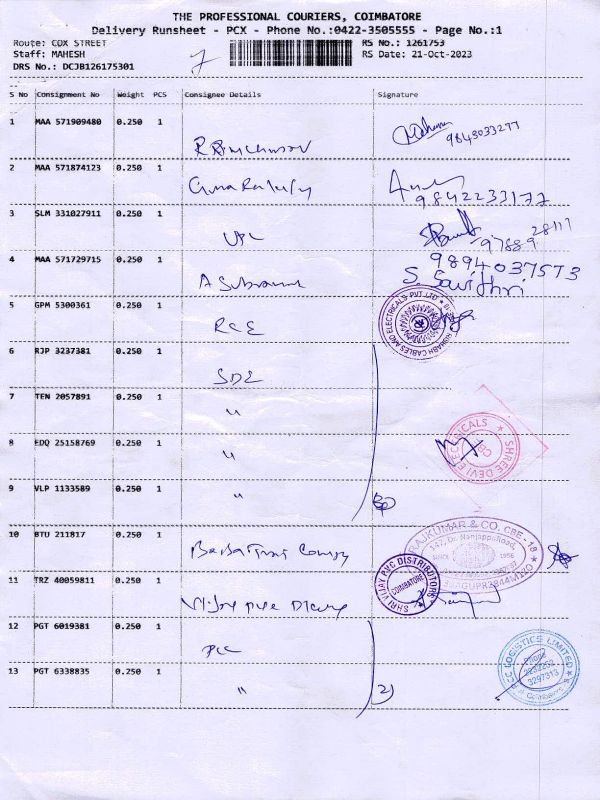 THE PROFESSIONAL COURIERS, COIMBATORE
Delivery Runsheet - PCX - Phone No.:0422-3505555 - Page No.:1
Route: COX STREET
Staff: MAHESH
DRS No.: DCJB126175301
7
RS No.: 1261753
RS Date: 21-Oct-2023
S No Consignment No Weight PCS Consignee Details Signature
1 MAA 571909480 0.250 1
9843033277
2 MAA 571874123 0.250 1
9842233177
3 SLM 331027911 0.250 1
97889 28117
4 MAA 571729715 0.250 1 A
9894037573
S. Savithri
5 GPM 5300361 0.250 1 RCE
RISHABH CABLES AND ELECTRICALS PVT. LTD
6 RJP 3237381 0.250 1 SDE
7 TEN 2057891 0.250 1 "
8 EDQ 25158769 0.250 1 "
SHREE DEVI ELECTRICALS
CBE
9 VLP 1133589 0.250 1 "
10 BTU 211817 0.250 1
RAJKUMAR & CO. CBE - 18
147, Dr. Nanjappa Road,
SINCE 1956
11 TRZ 40059811 0.250 1 Vijay PVC
SHRI VIJAY PVC DISTRIBUTORS
COIMBATORE
12 PGT 6019381 0.250 1
13 PGT 6338835 0.250 1 "
2)
LOGISTICS LIMITED
Phone
3297313
Coimbatore